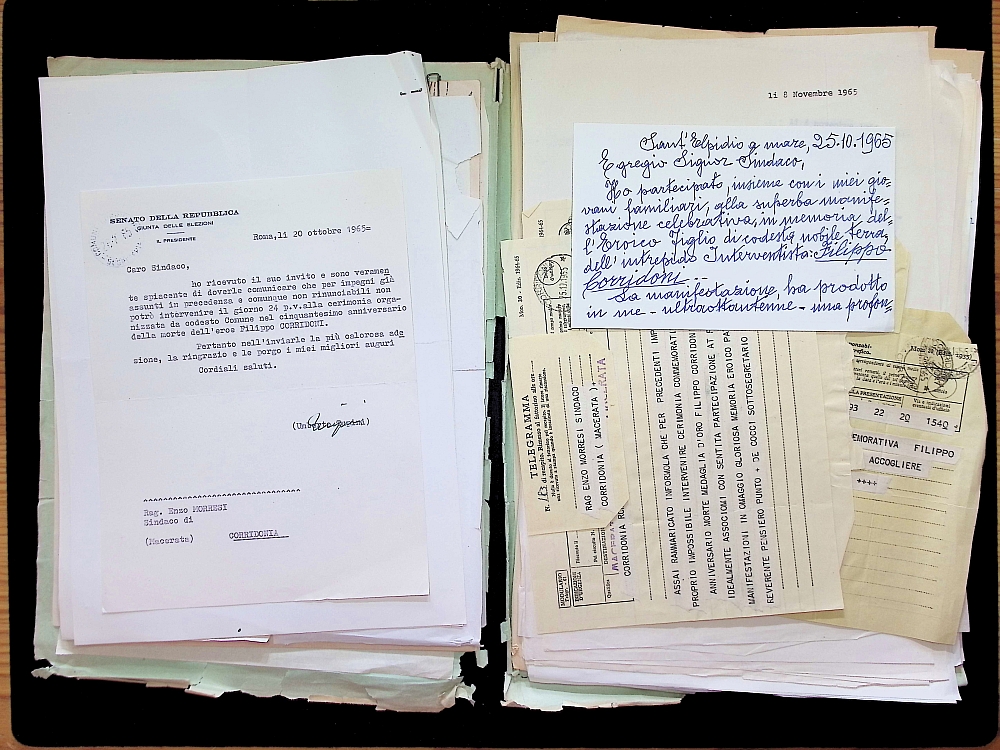 SENATO DELLA REPUBBLICA
GIUNTA DELLE ELEZIONI
IL PRESIDENTE
Roma,li 20 ottobre 1965=
Caro Sindaco,
ho ricevuto il suo invito e sono veramen
te spiacente di doverle comunicare che per impegni già
assunti in precedenza e comunque non rinunciabili non
potrò intervenire il giorno 24 p.v.alla cerimonia orga-
nizzata da codesto Comune nel cinquantesimo anniversario
della morte dell'eroe Filippo CORRIDONI.
Pertanto nell'inviarle la più calorosa ade
sione, la ringrazio e le porgo i miei migliori auguri
Cordiali saluti.
Rag. Enzo MORRESI
Sindaco di
(Macerata) CORRIDONIA
li 8 Novembre 1965
Sant'Elpidio a mare, 25.10.1965
Egregio Signor Sindaco,
Ho partecipato, insieme con i miei gio=
vani familiari, alla superba manife=
stazione celebrativa, in memoria del=
l'Eroico Figlio di codesta nobile terra,
dell'intrepido Interventista: Filippo
Corridoni...
La manifestazione, ha prodotto
in me - ultraottantenne - una profon=
Mod. 30 - Ediz. 1964-65
1964-65
TELEGRAMMA
RAG ENZO MORRESI SINDACO
CORRIDONIA ( MACERATA )
MACERATA
CORRIDONIA
ASSAI RAMMARICATO INFORMOLA CHE PER PRECEDENTI IMP
PROPRIO IMPOSSIBILE INTERVENIRE CERIMONIA COMMEMORATI
ANNIVERSARIO MORTE MEDAGLIA D'ORO FILIPPO CORRIDON
IDEALMENTE ASSOCIOMI CON SENTITA PARTECIPAZIONE AT
MANIFESTAZIONI IN OMAGGIO GLORIOSA MEMORIA EROICO PA
REVERENTE PENSIERO PUNTO + DE COCCI SOTTOSEGRETARIO
PRESENTAZIONE
Via e indicazioni
eventuali d'ufficio
93 22 20 1540 +
EMORATIVA FILIPPO
ACCOGLIERE
++++